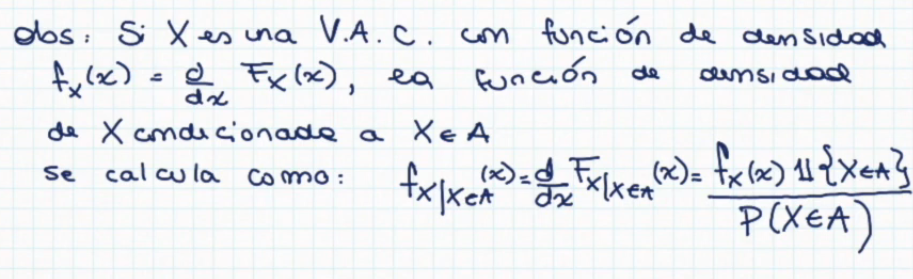 obs: Si X es una V.A.C. con función de densidad
f_X(x) = d/dx F_X(x), la función de densidad
de X condicionada a X ∈ A
se calcula como: f_{X|X∈A}(x) = d/dx F_{X|X∈A}(x) = f_X(x) 𝟙{X∈A} / P(X∈A)